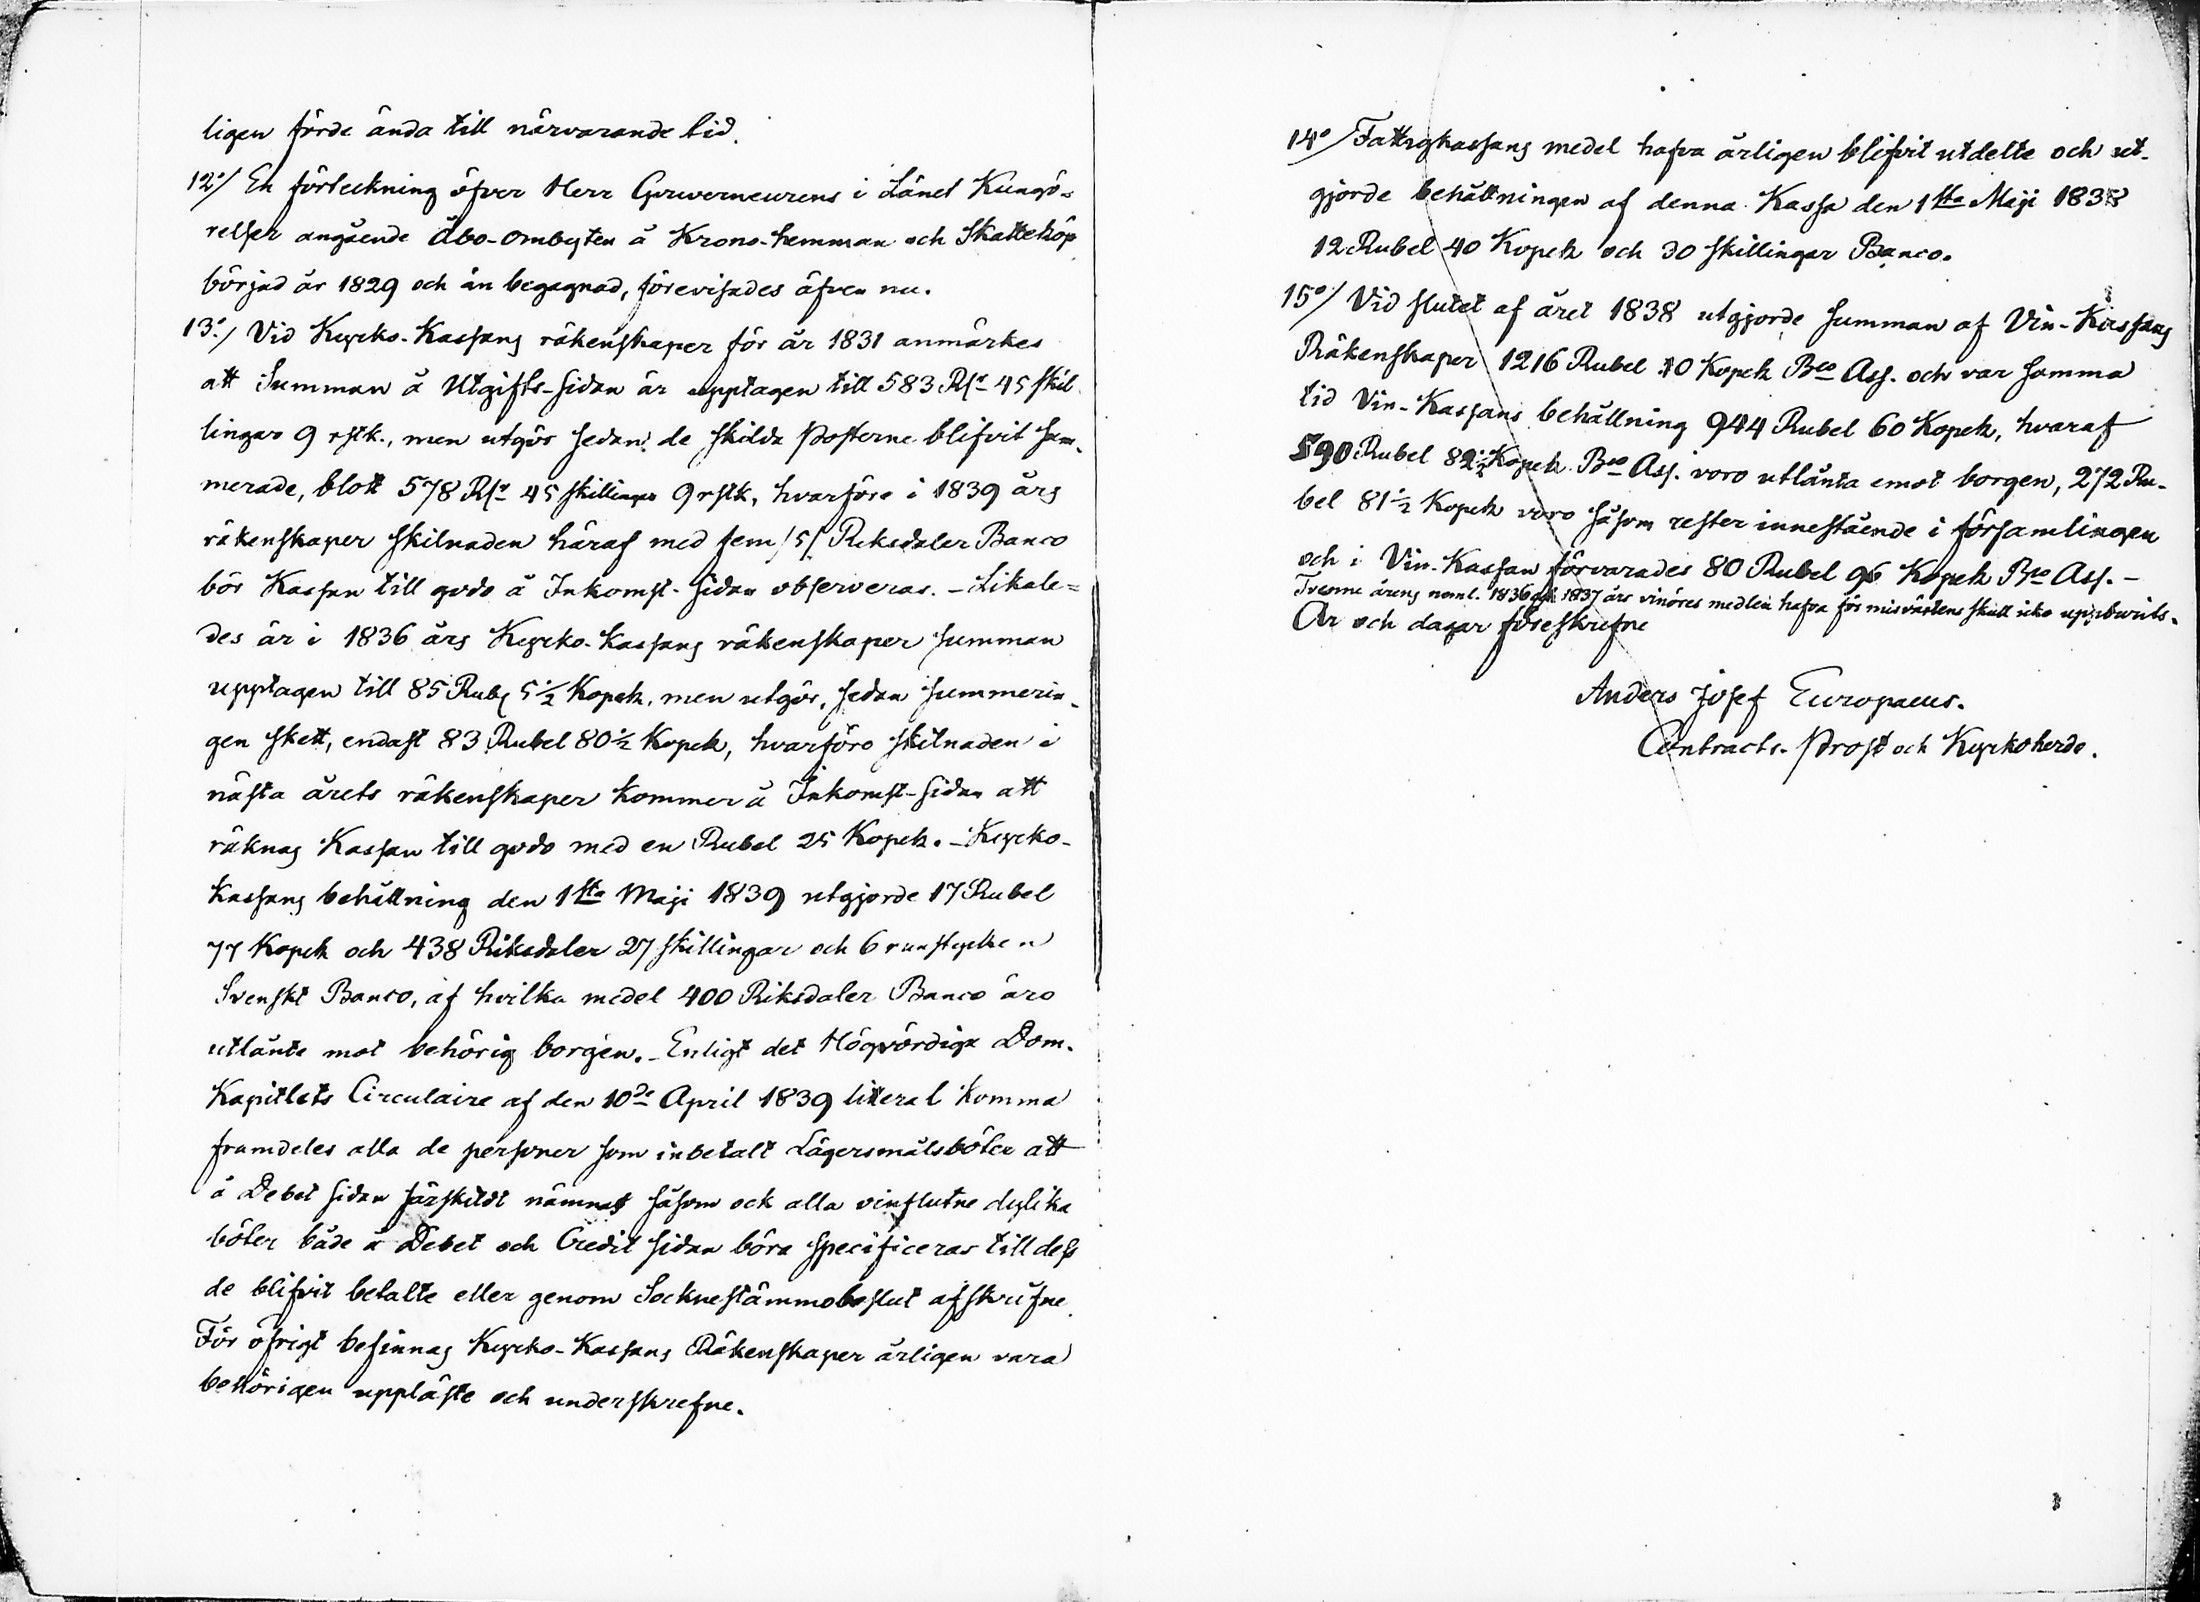 ligen förde ända till närvarande tid.
12:o/ En förteckning öfver Herr Gouverneurens i Länet Kungö-
relser angående Åbo-ombyten å Krono-hemman och Skatteköp
börjad år 1829 och än begagnad, förevisades äfven nu.
13:o/ Vid Kyrko-Kassans räkenskaper för år 1831 anmärkes
att Summan å Utgifts-sidan är upptagen till 583 Rdr 45 skil
lingar 9 rstk., men utgör sedan de skilda Posterne blifvit sum-
merade, blott 578 Rdr 45 skillingar 9 rstk, hvarföre i 1839 års
räkenskaper skilnaden häraf med fem /5/ Riksdaler Banco
bör Kassan till godo å Inkomst-sidan observeras. – Likale-
des är i 1836 års Kyrko-kassans räkenskaper summan
upptagen till 85 Rub, 5 1/2 Kopek, men utgör, sedan summerin-
gen skett, endast 83 Rubel 80 1/2 Kopek, hvarföre skilnaden i
nästa årets räkenskaper kommer å Inkomst-sidan att
räknas Kassan till godo med en Rubel 25 Kopek. – Kyrko-
kassans behållning den 1sta Maji 1839 utgjorde 17 Rubel
77 Kopek och 438 Riksdaler 27 skillingar och 6 runstycken
Svenskt Banco, af hvilka medel 400 Riksdaler Banco äro
utlånte mot behörig borgen. – Enligt det Högvördiga Dom-
Kapitlets Circulaire af den 10de April 1839 litera l komma
framdeles alla de personer som inbetalt Lägersmålsböter att
å Debet sidan särskildt nämnas såsom ock alla oinflutne dylika
böter både å Debet och Credit sidan böra specificeras till dess
de blifvit betalte eller genom Sockneståmmobeslut afskrifne.
För öfrigt befinnas Kyrko-Kassans Räkenskaper årligen vara
behörigen uppläste och underskrefne.
14:o/ Fattigkassans medel hafva årligen blifvit utdelte och ut-
gjorde behållningen af denna Kassa den 1sta Maji 1838
12 Rubel 40 Kopek och 30 skillingar Banco.
15:o/ Vid slutet af året 1838 utgjorde summan af Vin-Kassans
Räkenskaper 1216 Rubel 10 Kopek Bco Ass. och var samma
tid Vin-Kassans behållning 944 Rubel 60 Kopek, hvaraf
590 Rubel 82 1/2 Kopek Bco Ass. voro utlånta emot borgen, 272 Ru-
bel 81 1/2 Kopek voro såsom rester innestående i församlingen
och i Vin-Kassan förvarades 80 Rubel 96 Kopek Bco Ass. –
Tvenne årens neml. 1836 och 1837 års vinöres medlen hafva för misväxtens skull icke uppburits.
År och dagar föreskrefne
Anders Josef Europaeus.
Contracts-Prost och Kyrkoherde.